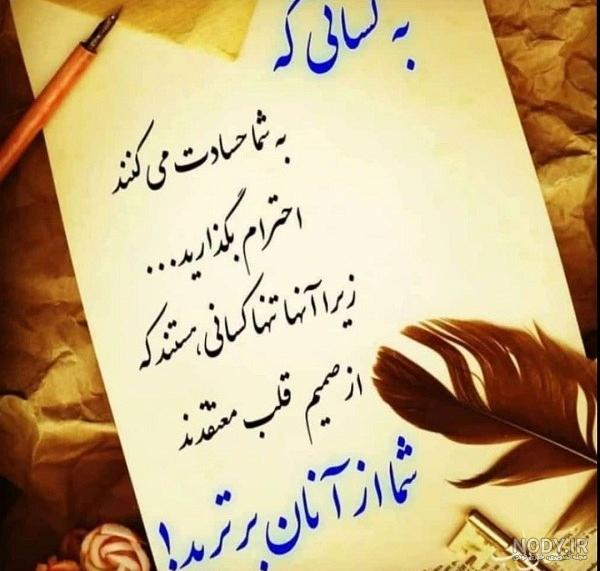 به کسانی که
به شما حسادت می کنند
احترام بگذارید...
زیرا آنها تنها کسانی هستند که
از صمیم قلب معتقدند
شما از آنان برترید!
NODY.IR